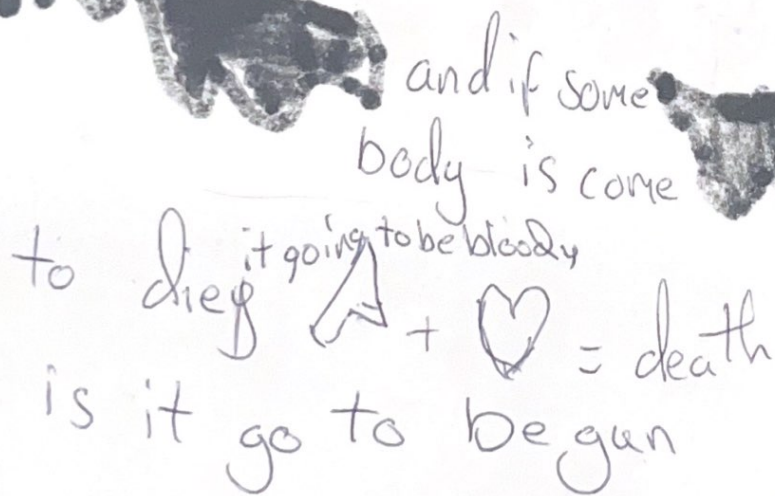 and if some
body is come
it going to be bloody
to dieg A + ♡ = death
is it go to be gun